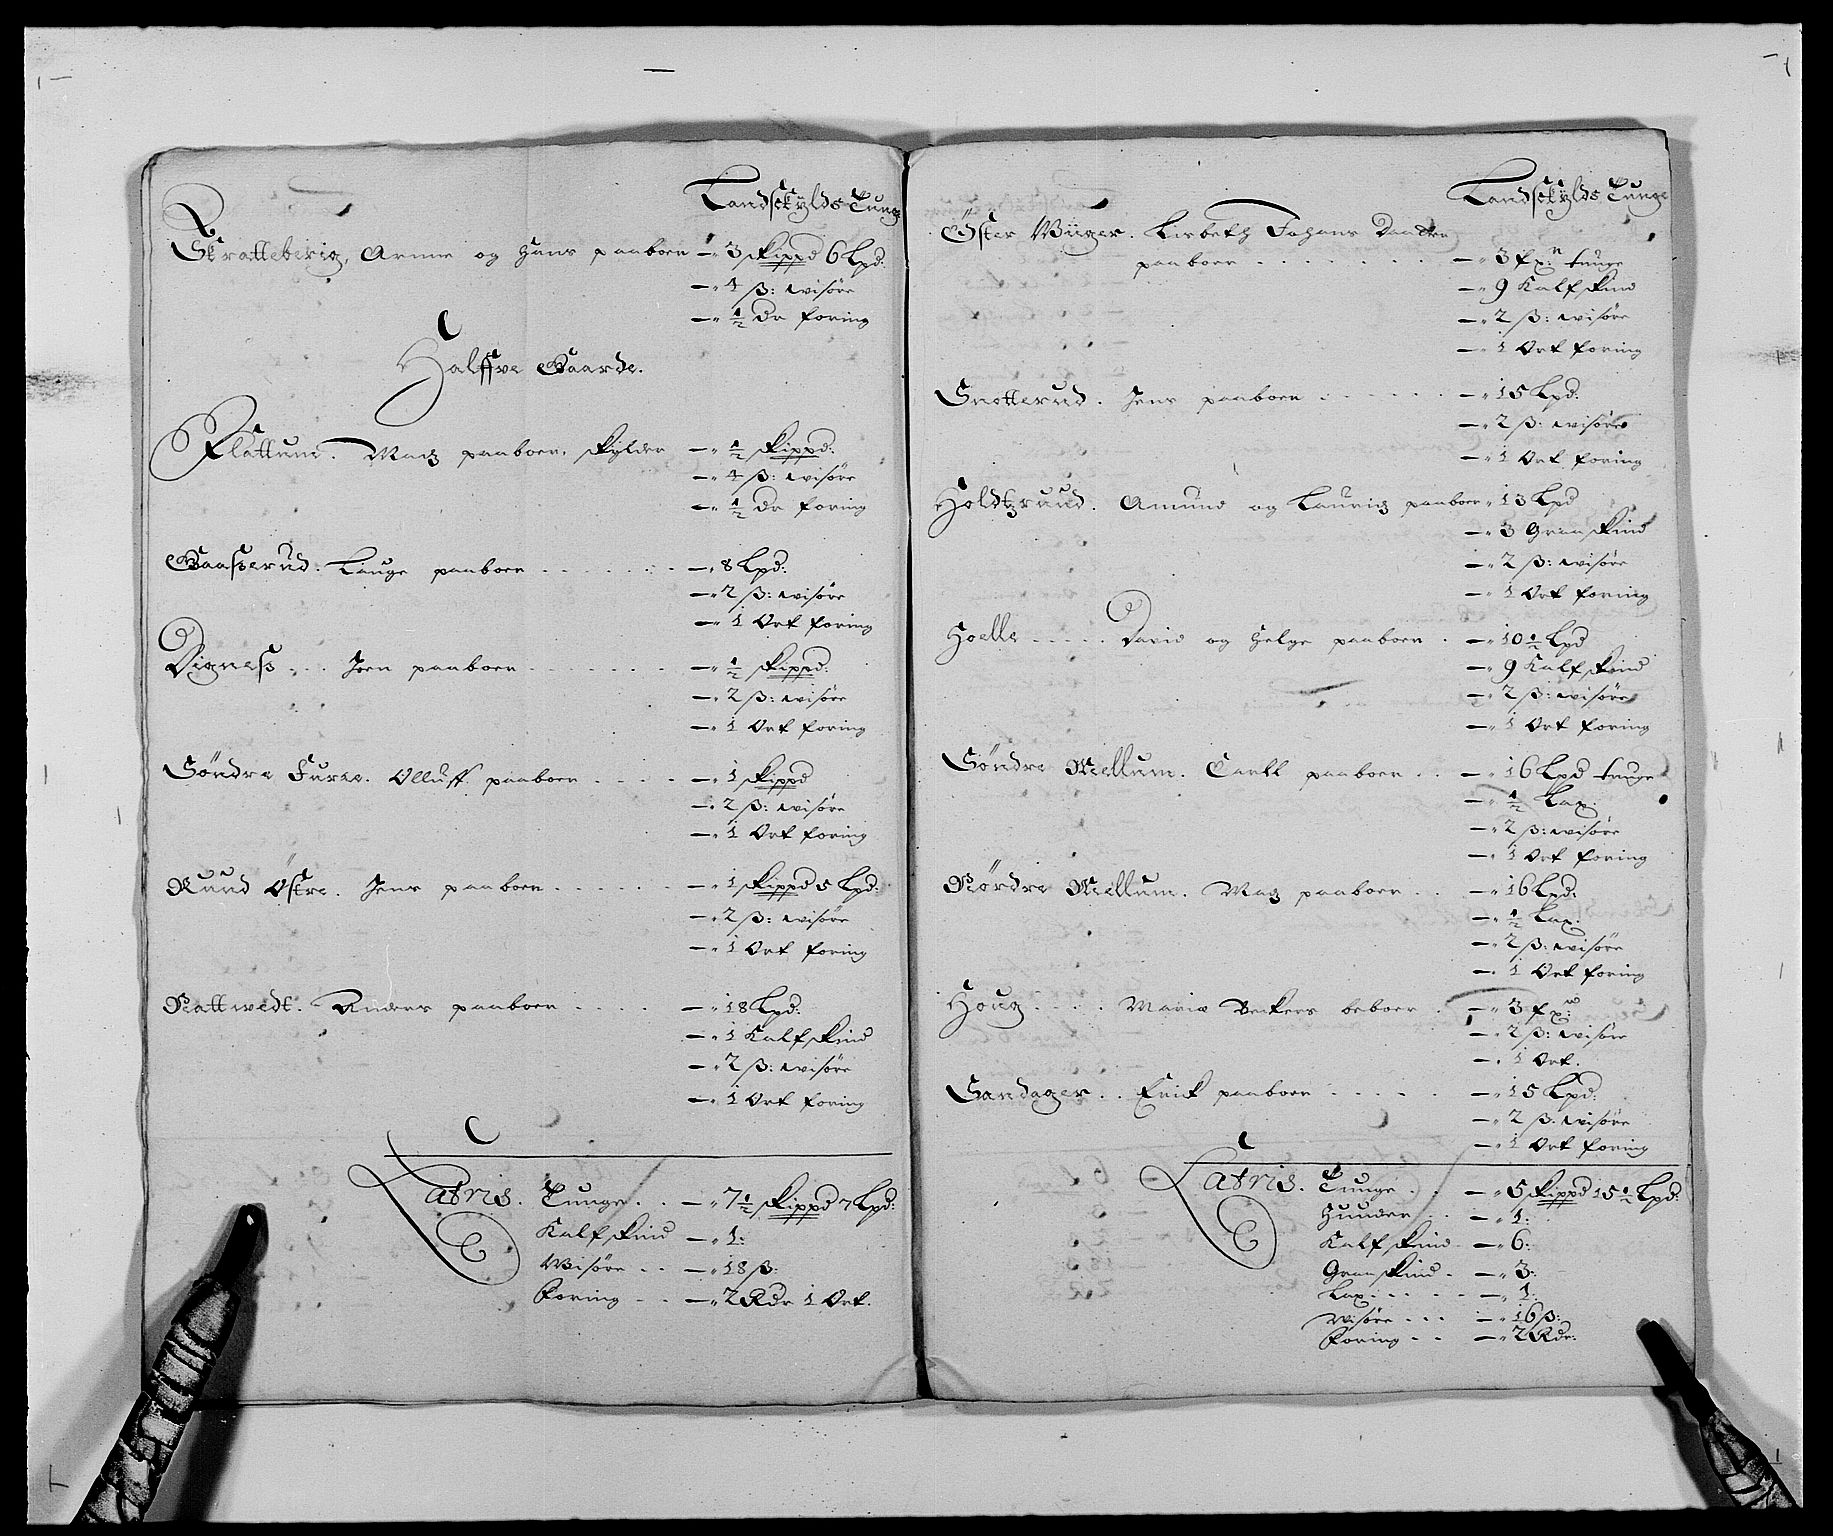 Landsckylds Tunge
Skratteberig, Arnne og Hans paaboer — 3 skippd 6 Lpd:
— 4 ß: wisöre
— ½ dr foring
Halffve Gaarde.
Flattum. Madz paaboer, skylder — ½ skippd:
— 4 ß: wisöre
— ½ dr foring
Gaaßerud. Lauge paaboer — 8 Lpd:
— 2 ß: wisöre
— 1 Ort foring
Vigneß . . . Joen paaboer — ½ skippd:
— 2 ß: wisöre
— 1 Ort foring
Söndre Furre. Olluff paaboer — 1 skippd
— 2 ß: wisöre
— 1 Ort foring
Ruud Östre. Jens paaboer — 1 skippd 5 Lpd:
— 2 ß: wisöre
— 1 Ort foring
Nattwedt. Anders paaboer — 18 Lpd:
— 1 Kalfskind
— 2 ß: wisöre
— 1 Ort foring
Latris. Tunge . . — 7½ skippd 7 Lpd:
Kalfskind — 1:
Wisöre . . — 18 ß:
Foring . . — 2 Rdr 1 Ort.
Landsckylds Tunge
Öster Wiiger. Lisbeth Johans Daatter
paaboer — 3 fx:n tunge
— 9 Kalfskind
— 2 ß: wisöre
— 1 Ort foring
Snotterud. Jens paaboer — 15 Lpd:
— 2 ß: wisöre
— 1 Ort foring
Holdtzruud. Amund og Lauridz paaboer 13 Lpd
— 3 Graaskind
— 2 ß: wisöre
— 1 Ort foring
Hoelle . . . . . David og Helge paaboer . — 10½ Lpd
— 9 Kalfskind
— 2 ß: wisöre
— 1 Ort foring
Söndre Mellum. Carll paaboer . . — 16 Lpd tunge
— ½ Lax:
— 2 ß: wisöre
— 1 Ort foring
Nördre Mellum. Madz paaboer . . — 16 Lpd:
— ½ Lax:
— 2 ß: wisöre
— 1 Ort foring
Houg . . . . Maria Beckers beboer . — 3 fx:
— 2 ß: wisöre
— 1 Ort.
Sandager . . Erik paaboer — 15 Lpd:
— 2 ß: wisöre
— 1 Ort foring
Latris. Tunge . . — 5 skippd 15½ Lpd:
Huuder . . — 1:
Kalfskind — 6:
Graaskind . — 3:
Lax . . . . — 1:
Wisöre . . . — 16 ß:
Foring . . — 2 Rdr: